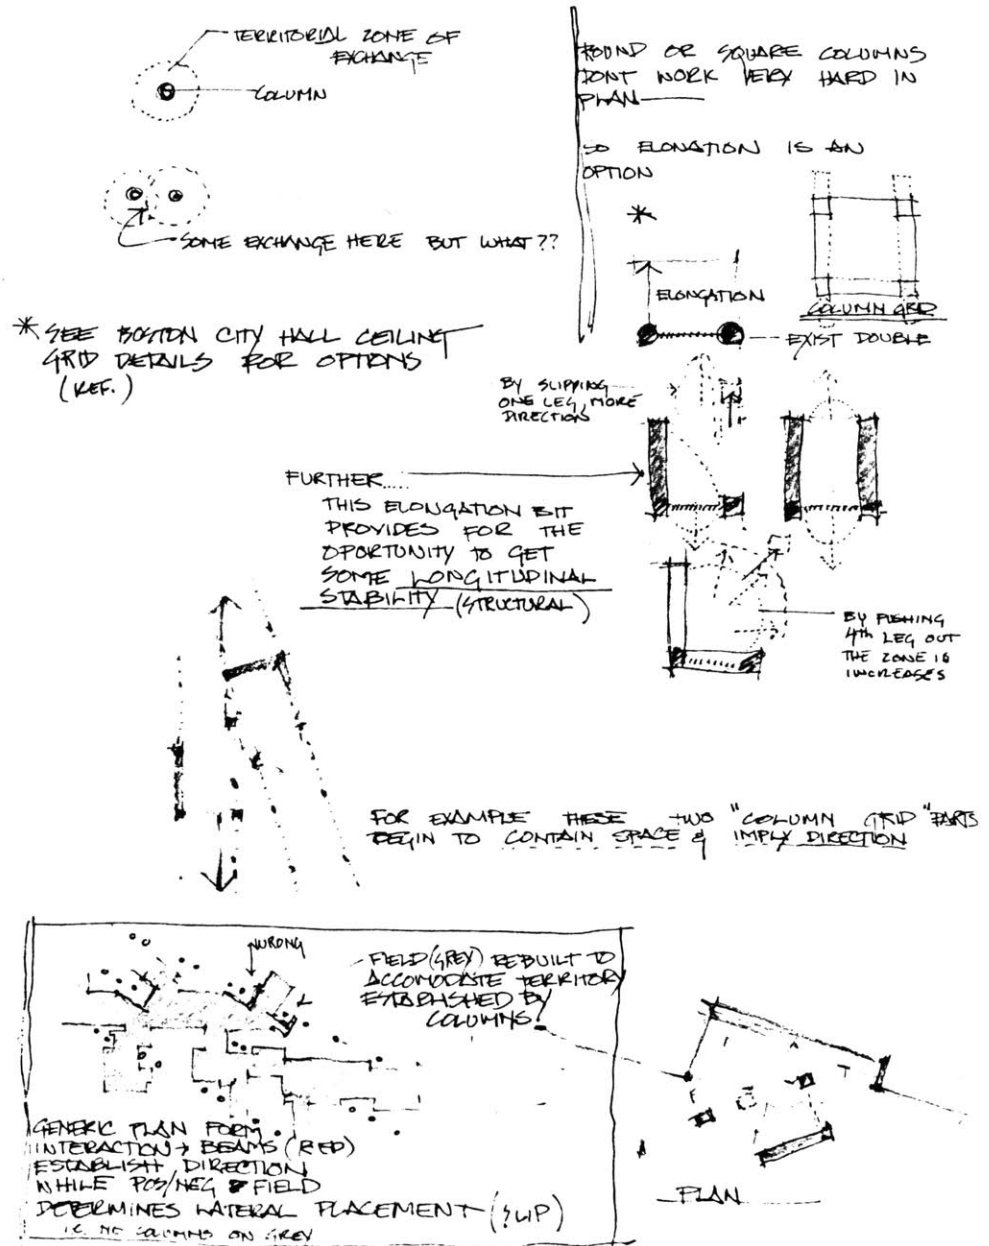 TERRITORIAL ZONE OF
EXCHANGE
COLUMN
SOME EXCHANGE HERE BUT WHAT??
* SEE BOSTON CITY HALL CEILING
GRID DETAILS FOR OPTIONS
(REF.)
ROUND OR SQUARE COLUMNS
DONT WORK VERY HARD IN
PLAN
SO ELONATION IS AN
OPTION
*
ELONGATION
COLUMN GRID
EXIST DOUBLE
BY SLIPPING
ONE LEG MORE
DIRECTION
FURTHER.....
THIS ELONGATION BIT
PROVIDES FOR THE
OPORTUNITY TO GET
SOME LONGITUDINAL
STABILITY (STRUCTURAL)
BY PUSHING
4TH LEG OUT
THE ZONE IS
INCREASES
FOR EXAMPLE THESE TWO "COLUMN GRID" PARTS
BEGIN TO CONTAIN SPACE & IMPLY DIRECTION
WRONG
FIELD (GREY) REBUILT TO
ACCOMODATE TERRITORY
ESTABLISHED BY
COLUMNS.
GENERIC PLAN FORM
INTERACTION → BEAMS (RED)
ESTABLISH DIRECTION
WHILE POS/NEG FIELD
DETERMINES LATERAL PLACEMENT (SLIP)
IE NO COLUMNS ON GREY
PLAN